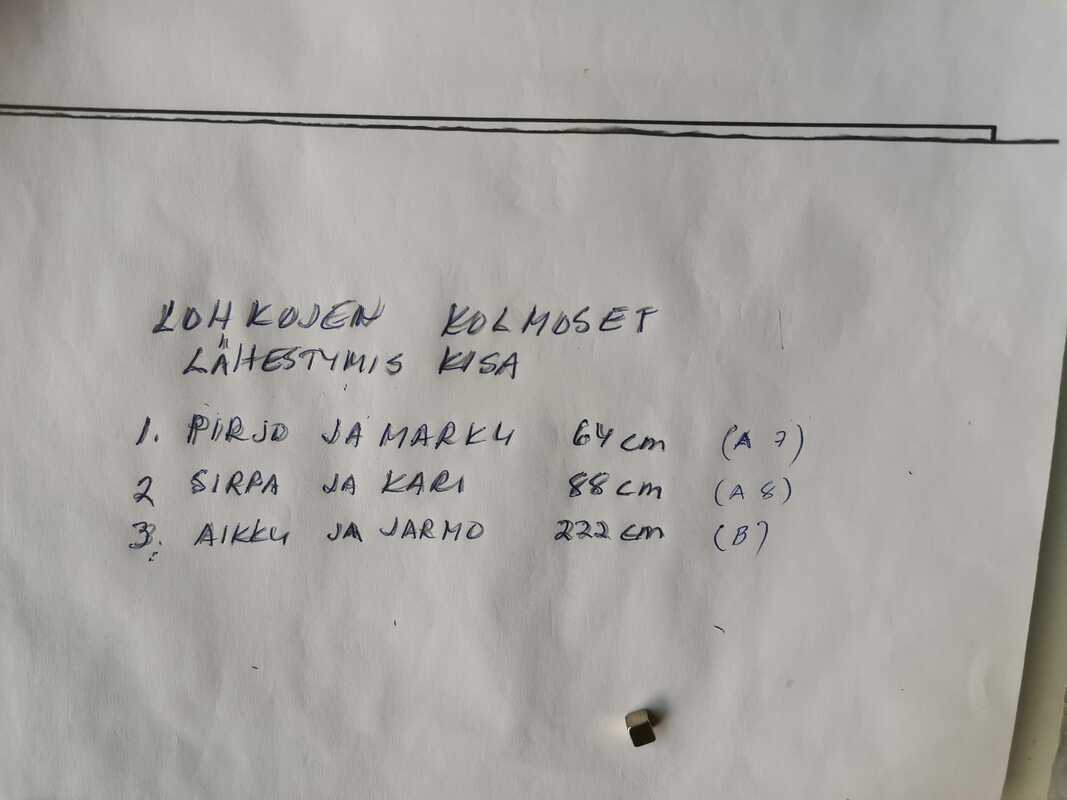 LOHKOJEN KOLMOSET
LÄHESTYMIS KISA
1. PIRJO JA MARKU 64 cm (A 7)
2 SIRPA JA KARI 88 cm (A 8)
3. AIKKU JA JARMO 222 cm (B)